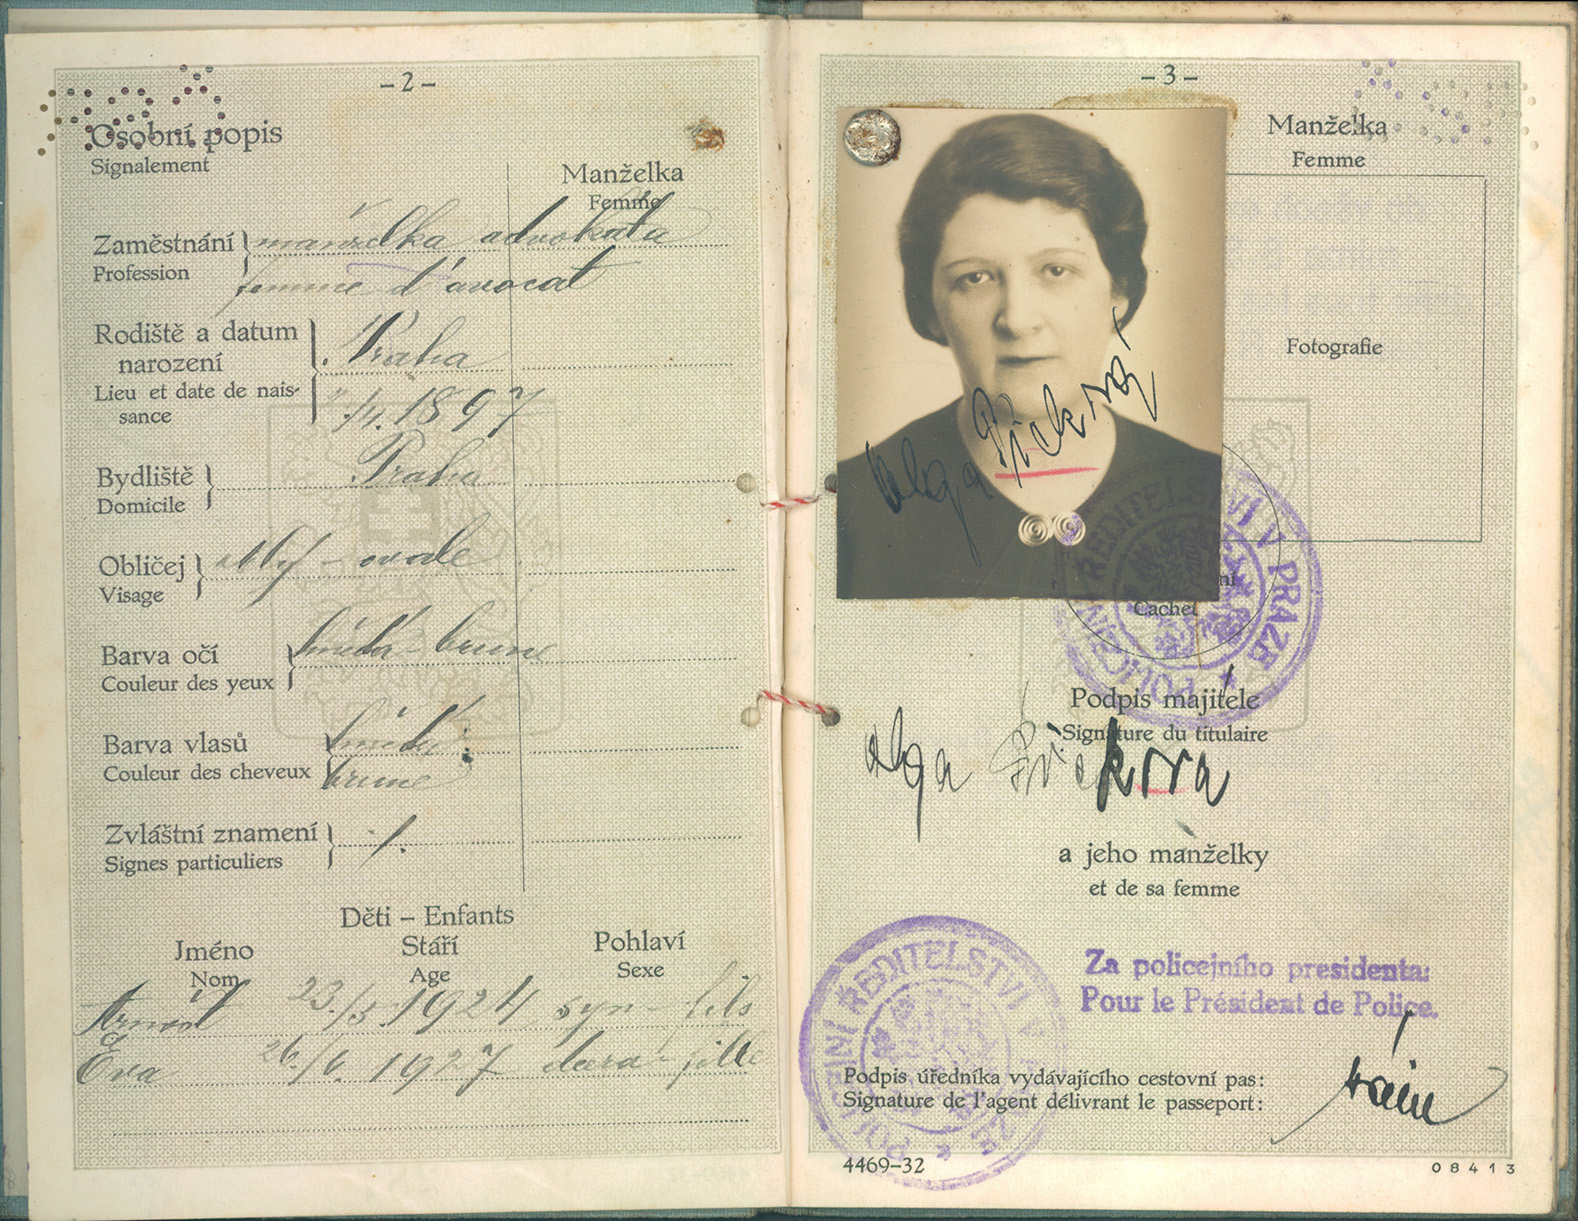 – 2 –
Osobní popis
Signalement
Manželka
Femme
Zaměstnání manželka advokáta
Profession femme d'avocat
Rodiště a datum Praha
narození
Lieu et date de nais- /4. 1897
sance
Bydliště Praha
Domicile
Obličej ovale
Visage
Barva očí hnědá – brune
Couleur des yeux
Barva vlasů hnědé
Couleur des cheveux brune
Zvláštní znamení ./.
Signes particuliers
Děti – Enfants
Jméno Stáří Pohlaví
Nom Age Sexe
Arnošt 23./3. 1924 syn – fils
Eva 26./6. 1927 dcera – fille
– 3 –
Manželka
Femme
Fotografie
Olga Picková
Cachet
POLICEJNÍ ŘEDITELSTVÍ V PRAZE
Podpis majitele
Signature du titulaire
Olga Picková
a jeho manželky
et de sa femme
Za policejního presidenta:
Pour le Président de Police.
POLICEJNÍ ŘEDITELSTVÍ V PRAZE
Podpis úředníka vydávajícího cestovní pas:
Signature de l'agent délivrant le passeport:
4469–32
08413